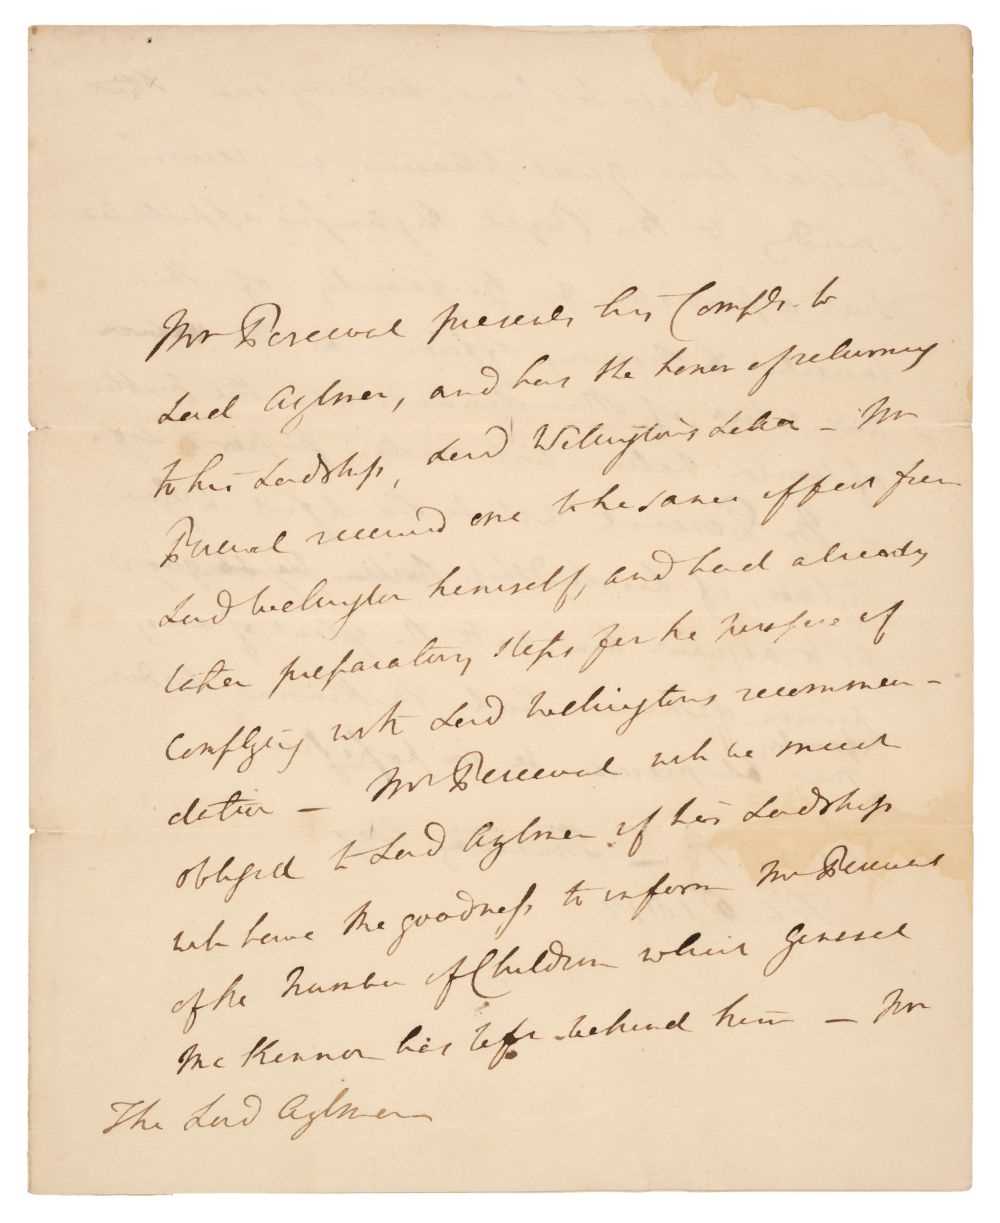 Mr Perceval presents his Compts. to
Lord Aylmer, and has the honor of returning
to his Lordship, Lord Wellington's Letter — Mr
Perceval received one to the same effect from
Lord Wellington himself, and had already
taken preparatory steps for the purpose of
complying with Lord Wellington's recommen-
dation — Mr Perceval will be much
obliged to Lord Aylmer if his Lordship
will have the goodness to inform Mr Perceval
of the Number of Children which General
McKennon has left behind him — Mr
The Lord Aylmer